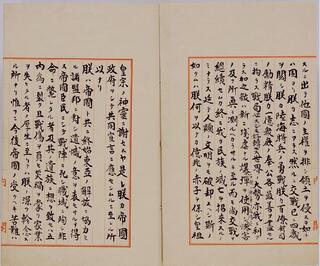 スルニ出テ他國ノ主權ヲ排シ領土ヲ侵スカ如キ
ハ固ヨリ朕カ志ニアラス然ルニ交戰已ニ四歳
ヲ閲シ朕カ陸海將兵ノ勇戰朕カ百僚有司
ノ勵精朕カ一億衆庶ノ奉公各〻最善ヲ盡セルニ
拘ラス戰局必スシモ好轉セス世界ノ大勢亦我ニ利
アラス加之敵ハ新ニ殘虐ナル爆彈ヲ使用シテ頻ニ無辜ヲ殺傷シ慘害
ノ及フ所眞ニ測ルヘカラサルニ至ル而モ尚交戰ヲ
繼續セムカ終ニ我カ民族ノ滅亡ヲ招來スルノ
ミナラス延テ人類ノ文明ヲモ破却スヘシ斯ノ
如クムハ朕何ヲ以テカ億兆ノ赤子ヲ保シ皇祖
皇宗ノ神靈ニ謝セムヤ是レ朕カ帝國
政府ヲシテ共同宣言ニ應セシムルニ至レル所
以ナリ
朕ハ帝國ト共ニ終始東亞ノ解放ニ協力セ
ル諸盟邦ニ對シ遺憾ノ意ヲ表セサルヲ得
ス帝國臣民ニシテ戰陣ニ死シ職域ニ殉シ非
命ニ斃レタル者及其ノ遺族ニ想ヲ致セハ五
内爲ニ裂ク且戰傷ヲ負ヒ災禍ヲ蒙リ家業
ヲ失ヒタル者ノ厚生ニ至リテハ朕ノ深ク軫念ス
ル所ナリ惟フニ今後帝國ノ受クヘキ苦難ハ